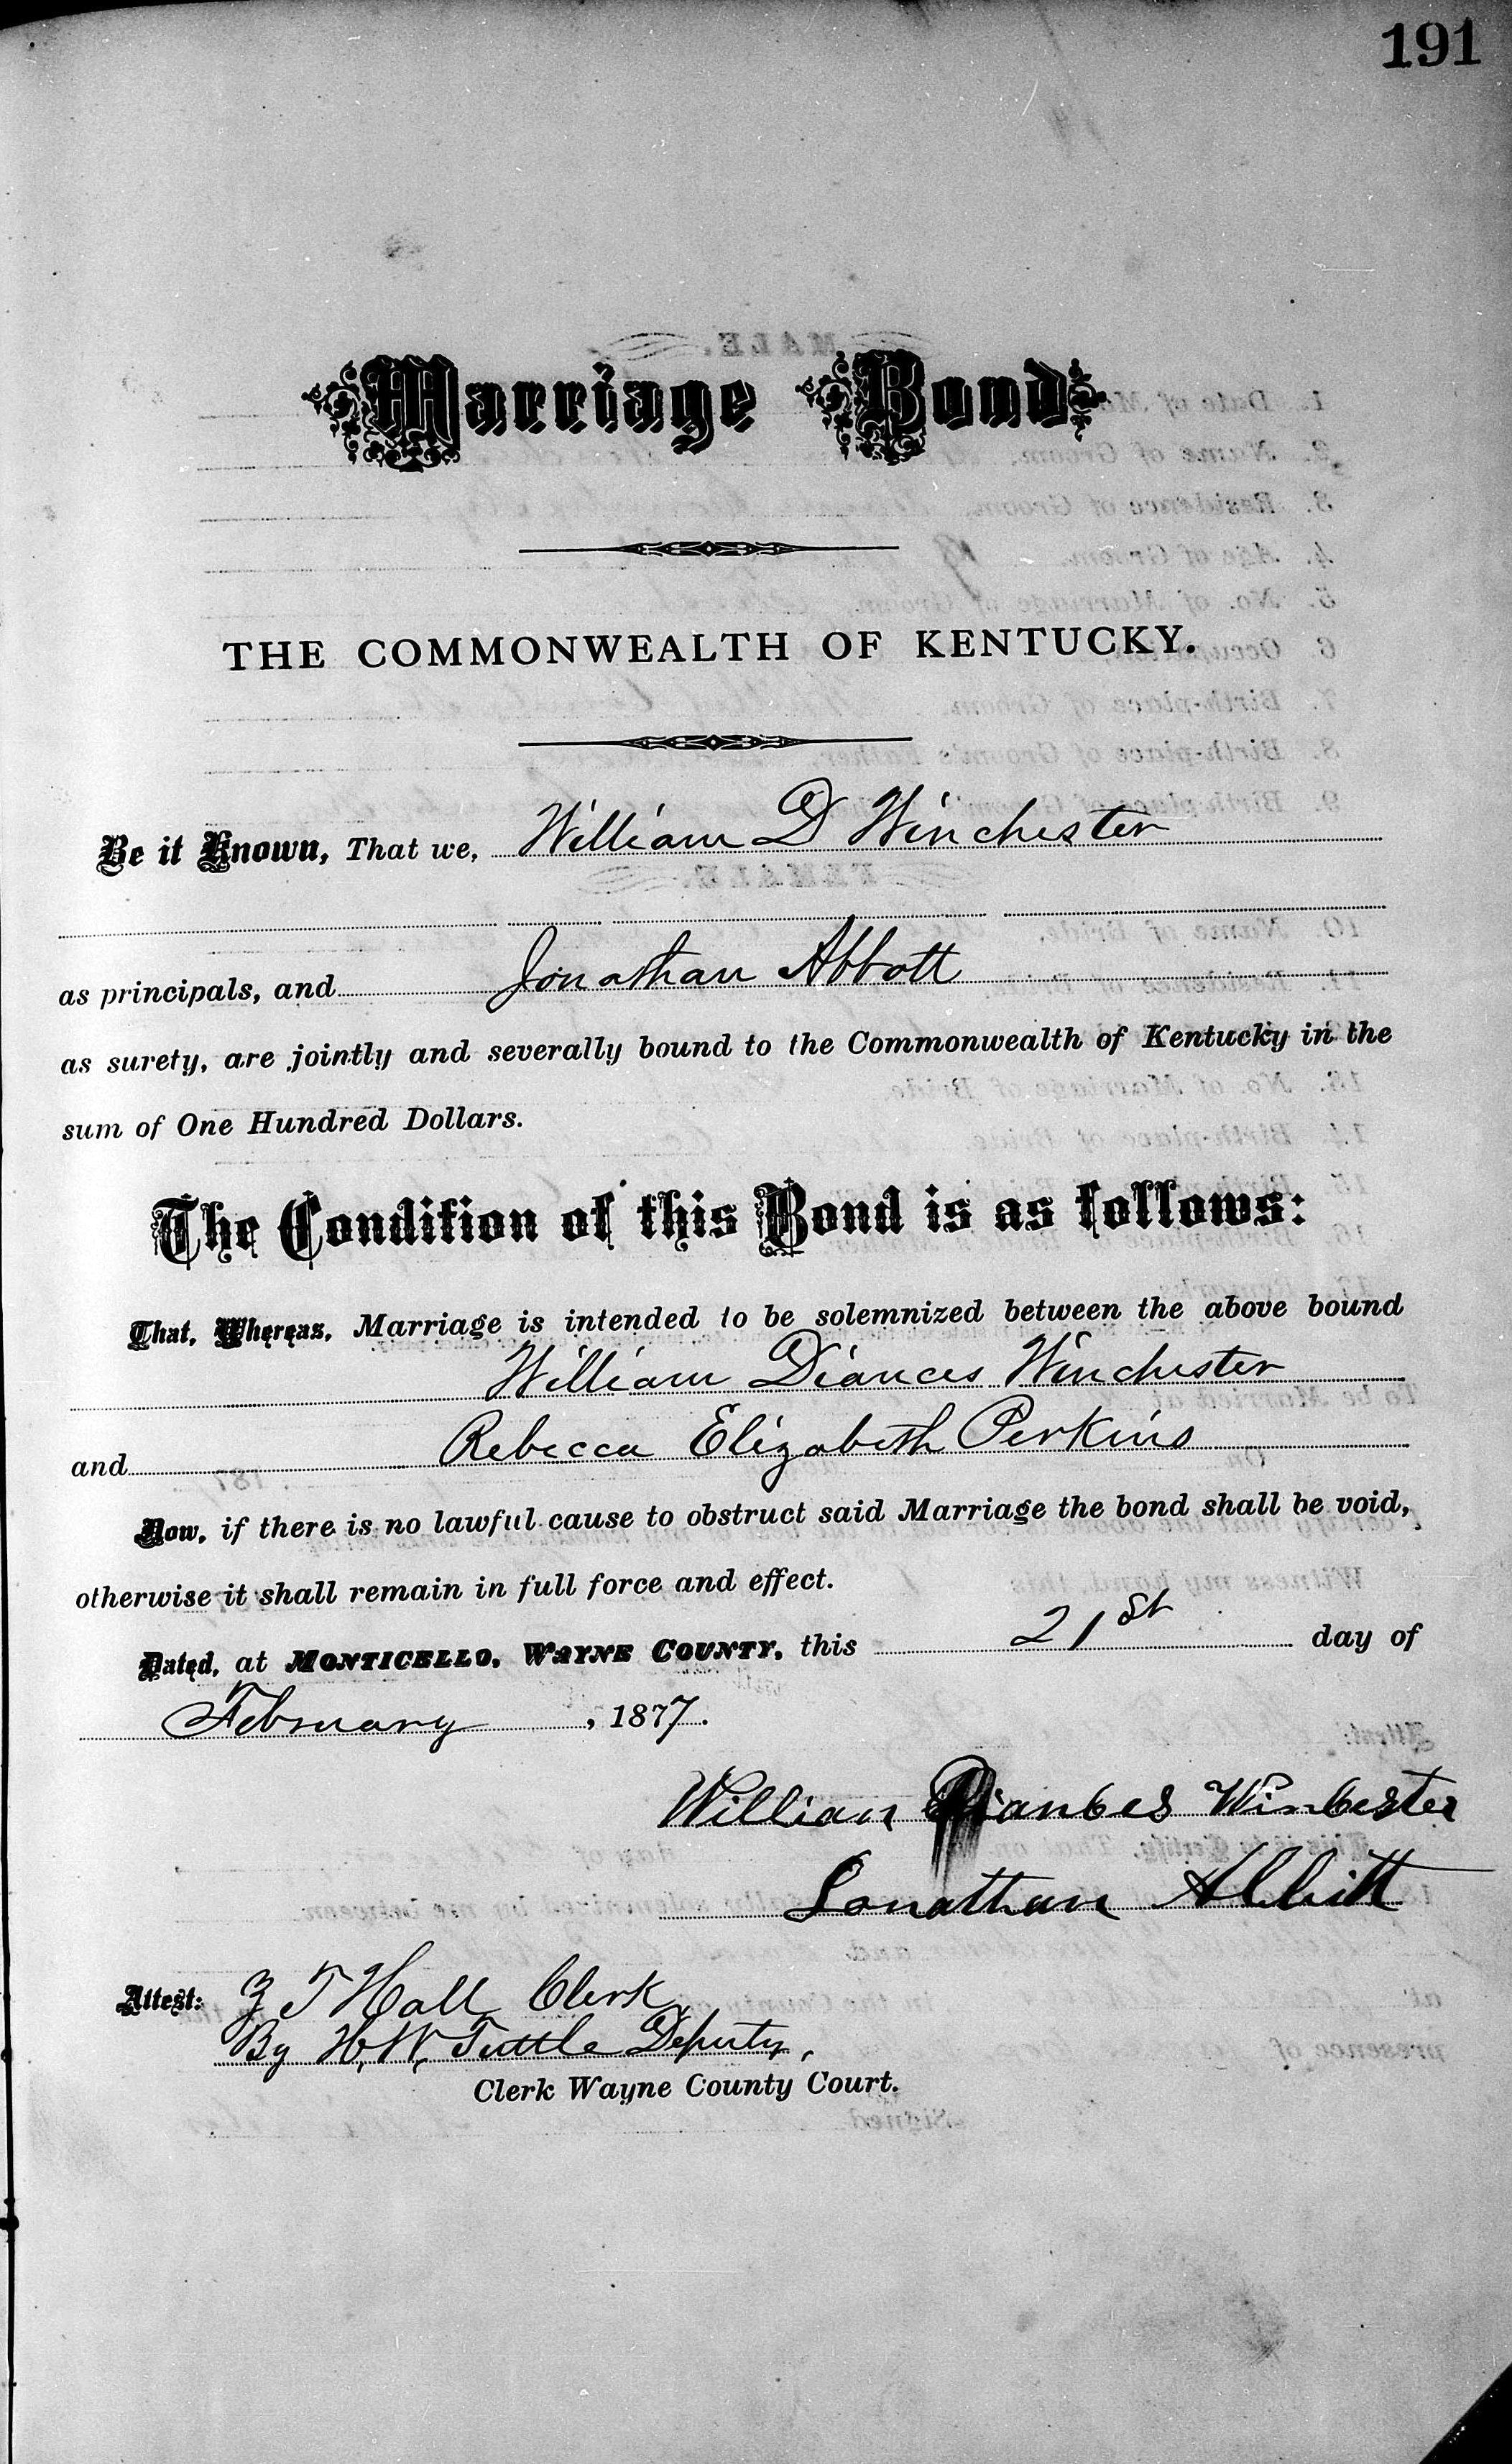 191
Marriage Bond
THE COMMONWEALTH OF KENTUCKY.
Be it Known, That we, William D Winchester
as principals, and Jonathan Abbott
as surety, are jointly and severally bound to the Commonwealth of Kentucky in the
sum of One Hundred Dollars.
The Condition of this Bond is as follows:
That, Whereas, Marriage is intended to be solemnized between the above bound
William Diances Winchester
and Rebecca Elizabeth Perkins
Now, if there is no lawful cause to obstruct said Marriage the bond shall be void,
otherwise it shall remain in full force and effect.
Dated, at MONTICELLO, WAYNE COUNTY, this 21st day of
February, 1877.
William Winbester
Jonathan Abbitt
Attest: Z T Hall Clerk
By H. W. Tuttle Deputy,
Clerk Wayne County Court.